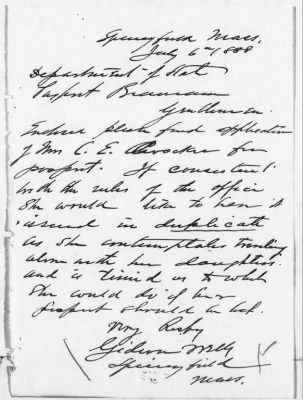 Springfield Mass.
July 6th 1888
Department of State
Pasport Beaureau
Gentlemen.
Enclosed please find application
of Mrs C. E. Crocker for
pasport. If consistent
with the rules of the office
she would like to have it
issued in duplicate
as she contemplates traveling
alone with her daughters
and is timid as to what
she would do if her
pasport should be lost.
Very Respy
Gideon Wells
Springfield
Mass.